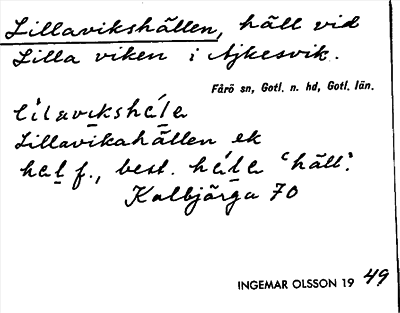 Lillavikshällen, häll vid
Lilla viken i Ajkesvik.
Fårö sn, Gotl. n. hd, Gotl. län.
lilavikshala
Lillavikahällen ek
hal f., best. hala 'häll'.
Kalbjärga 70
INGEMAR OLSSON 19 49